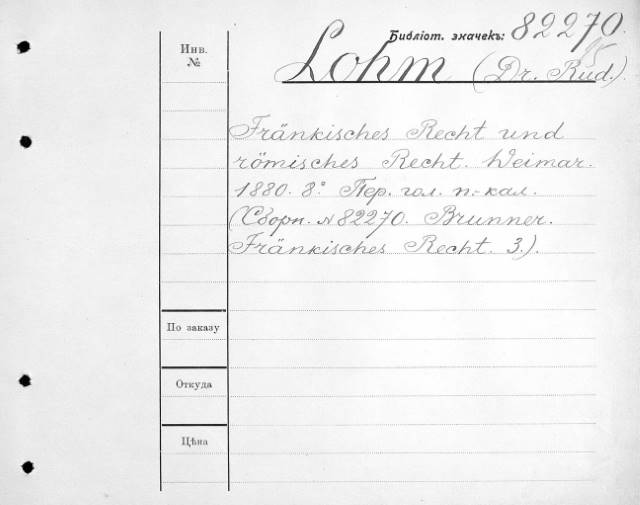 Библіот. значекъ: 82270.
15
Инв.
№
Lohm (Dr. Rud.)
Fränkisches Recht und
römisches Recht. Weimar.
1880. 8°. Пер. гол. п.-кал.
(Сборн. № 82270. Brunner.
Fränkisches Recht. 3.).
По заказу
Откуда
Цѣна